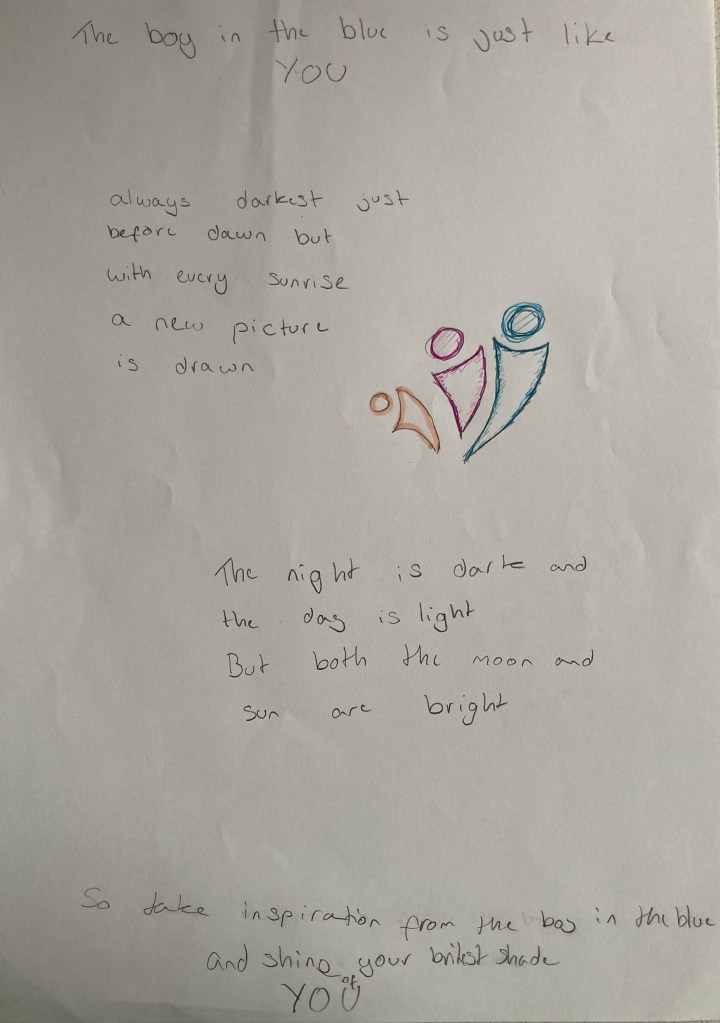 The boy in the blue is just like
YOU
always darkest just
before dawn but
with every sunrise
a new picture
is drawn
The night is dark and
the day is light
But both the moon and
sun are bright
So take inspiration from the boy in the blue
and shine your britest shade
of
YOU